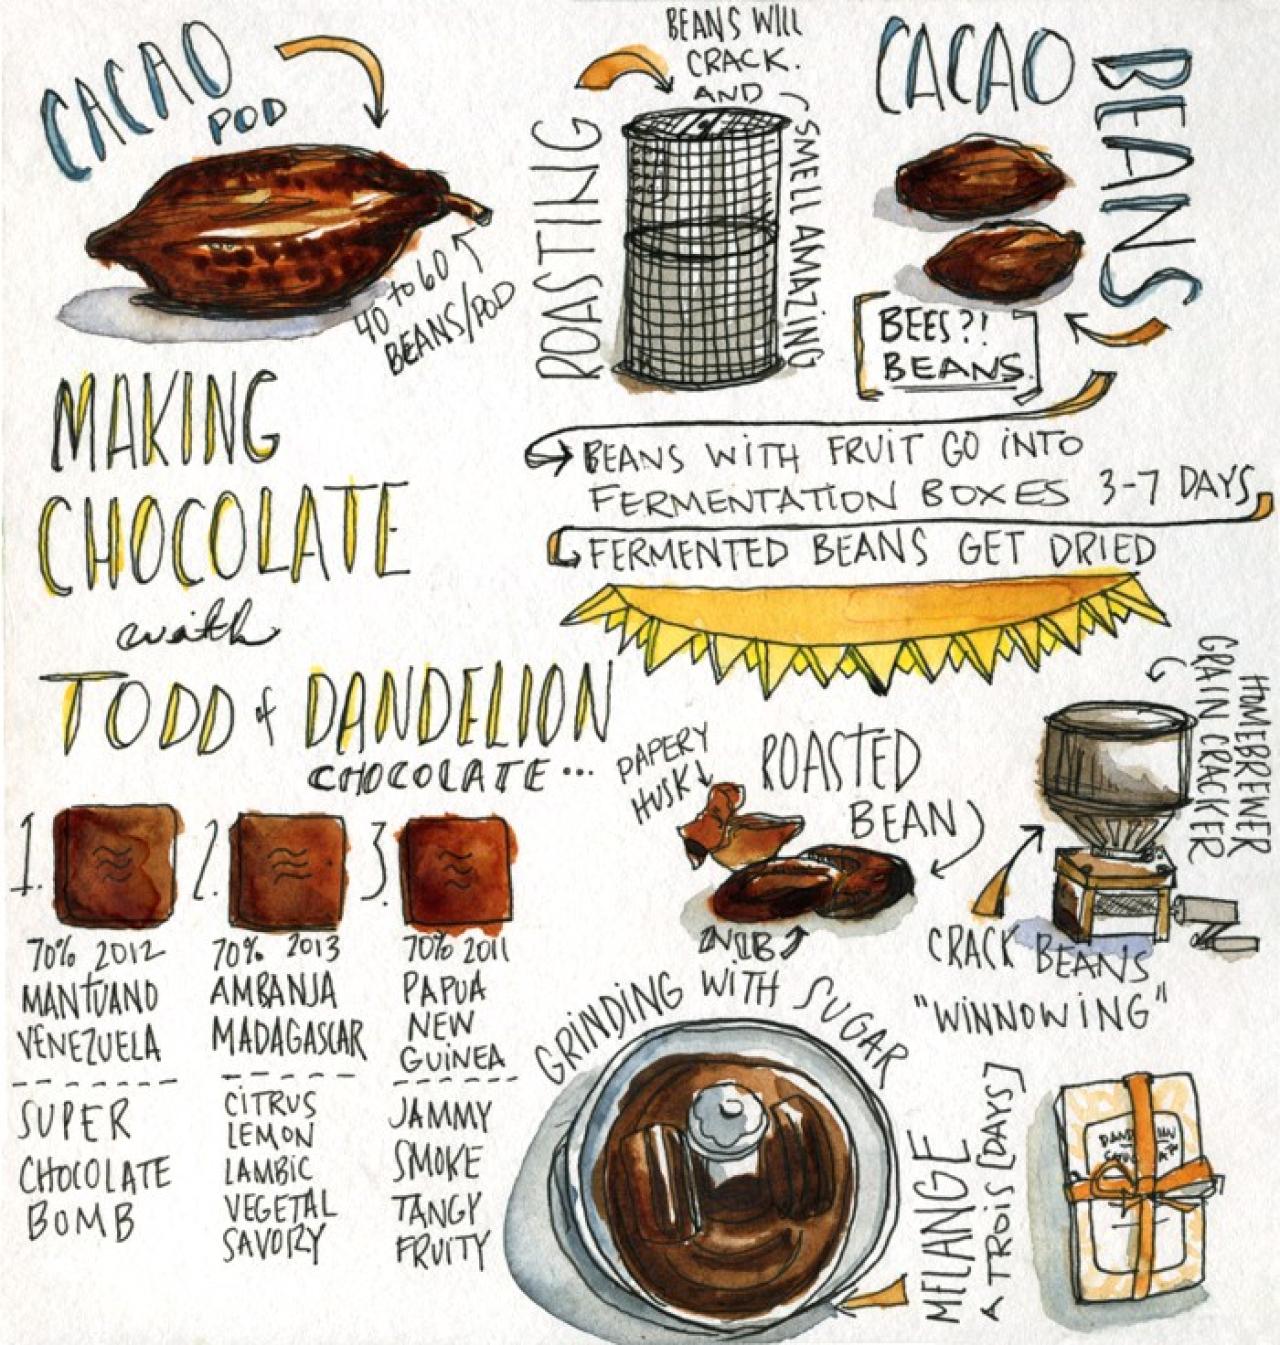 CACAO
POD
40 to 60
BEANS/POD
ROASTING
BEANS WILL
CRACK.
AND
SMELL AMAZING
CACAO
BEANS
BEES?!
BEANS.
BEANS WITH FRUIT GO INTO
FERMENTATION BOXES 3-7 DAYS
FERMENTED BEANS GET DRIED
MAKING
CHOCOLATE
with
TODD & DANDELION
CHOCOLATE...
1.
70% 2012
MANTUANO
VENEZUELA
SUPER
CHOCOLATE
BOMB
2.
70% 2013
AMBANJA
MADAGASCAR
CITRUS
LEMON
LAMBIC
VEGETAL
SAVORY
3.
70% 2011
PAPUA
NEW
GUINEA
JAMMY
SMOKE
TANGY
FRUITY
PAPERY
HUSK
ROASTED
BEAN
NIB
HOMEBREWER
GRAIN CRACKER
CRACK BEANS
"WINNOWING"
GRINDING WITH SUGAR
MELANGE
A TROIS [DAYS]